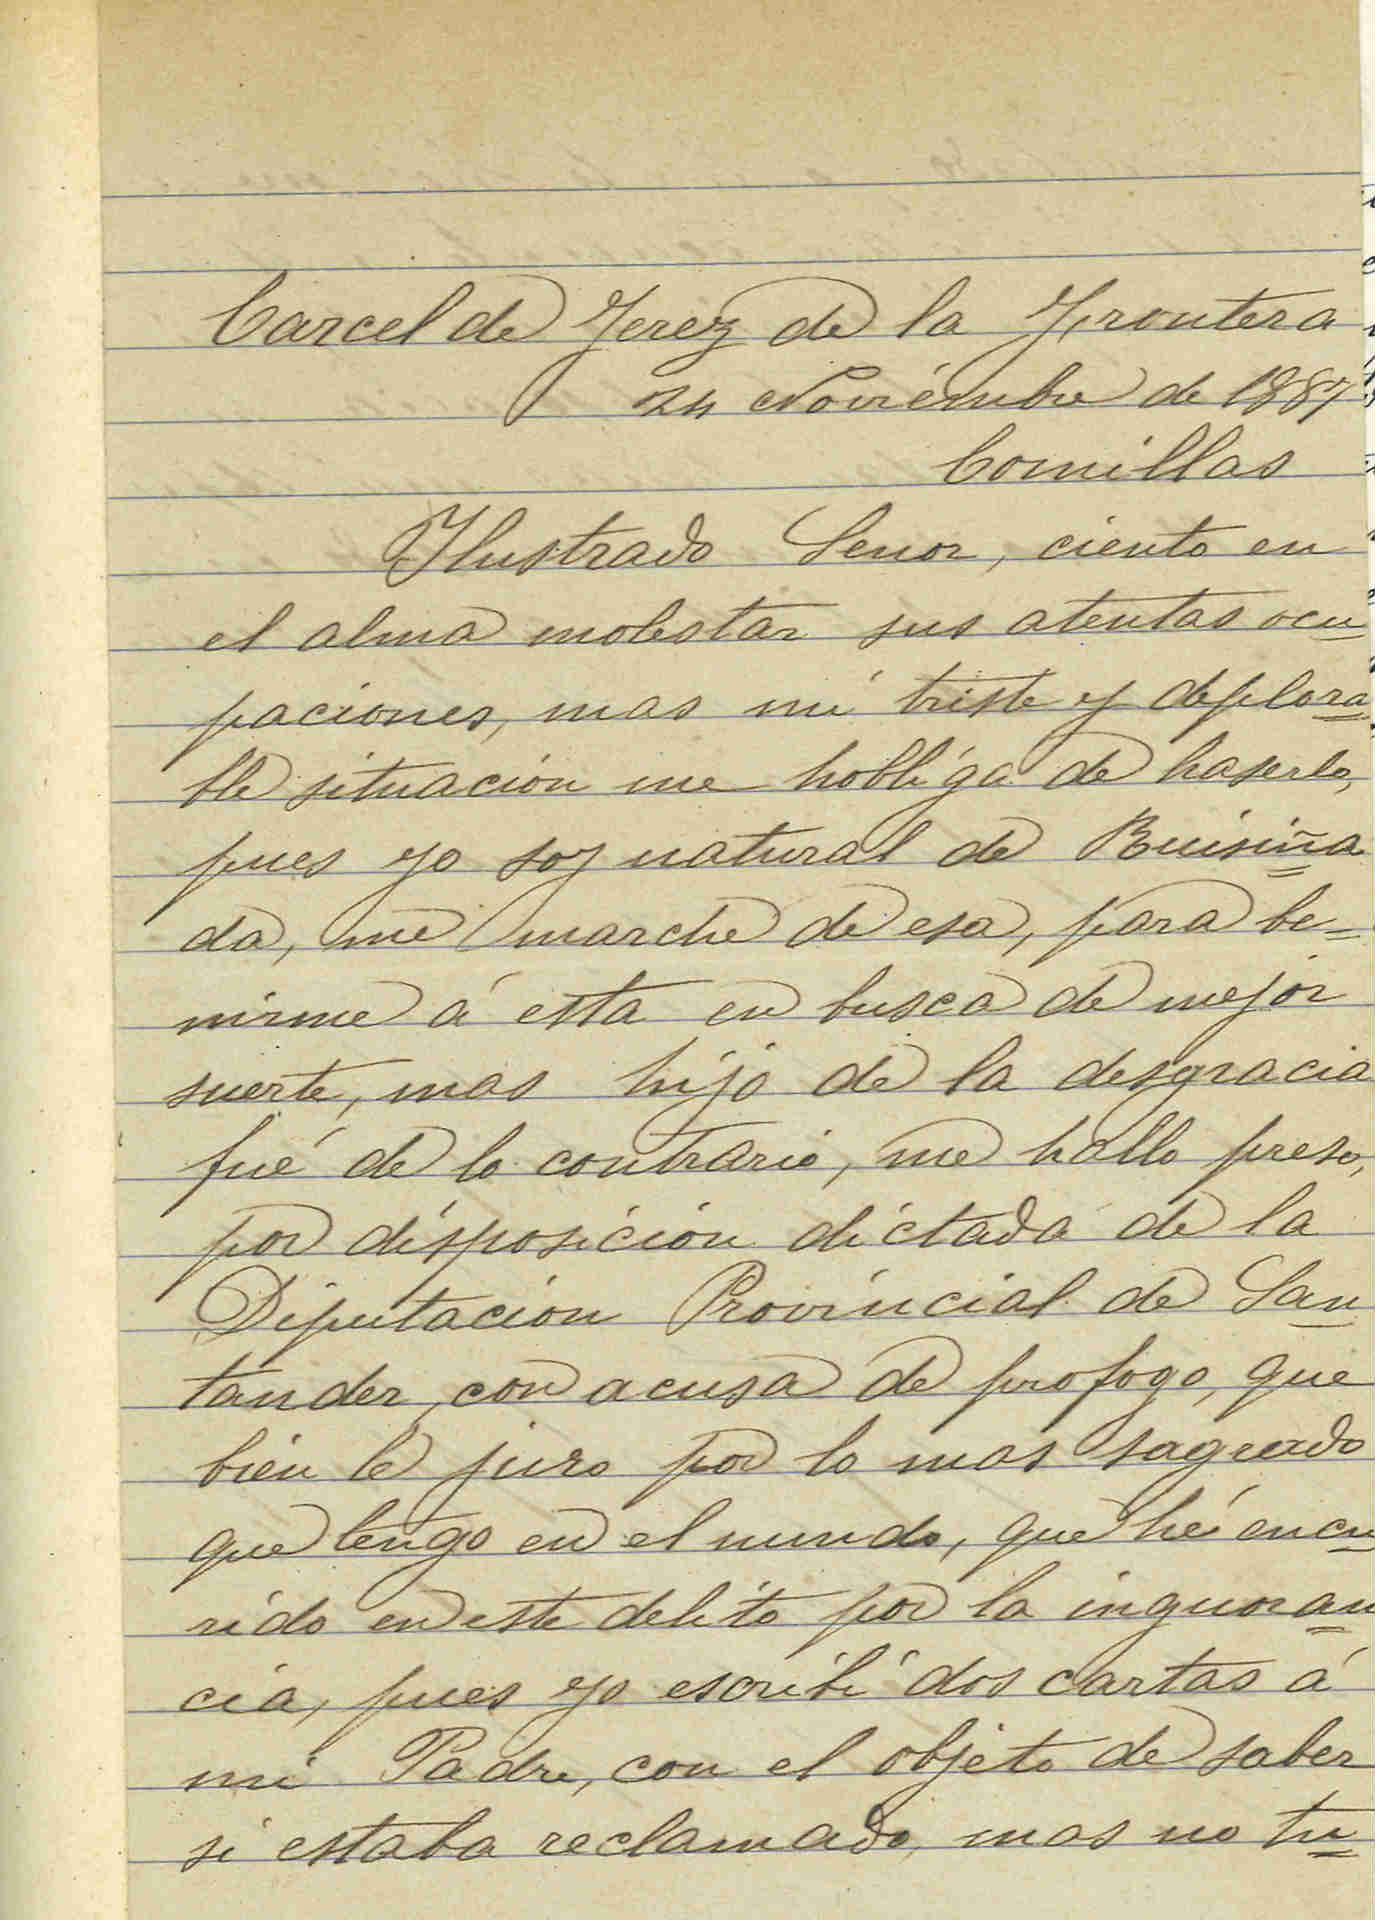 Carcel de Jerez de la Frontera
24 Noviémbre de 1887
Comillas
Ilustrado Senor, ciento en
el alma molestar sus atentas ocu=
paciones, mas mi triste y deplora=
ble situación me hobliga de haserlo,
pues yo soy natural de Ruisiña=
da, me marche de esa, para be=
nirme á esta en busca de mejor
suerte, mas hijo de la desgracia
fué de lo contrario, me hallo preso,
por disposición dictada de la
Diputación Provincial de San=
tander, con acusa de profogo, que
bien le juro por lo mas sagrado
que tengo en el mundo, que hé encu=
rido en este delito por la inguoran=
cia, pues yo escribí dos cartas á
mi Padre, con el objeto de saber
si estaba reclamado, mas no tu=